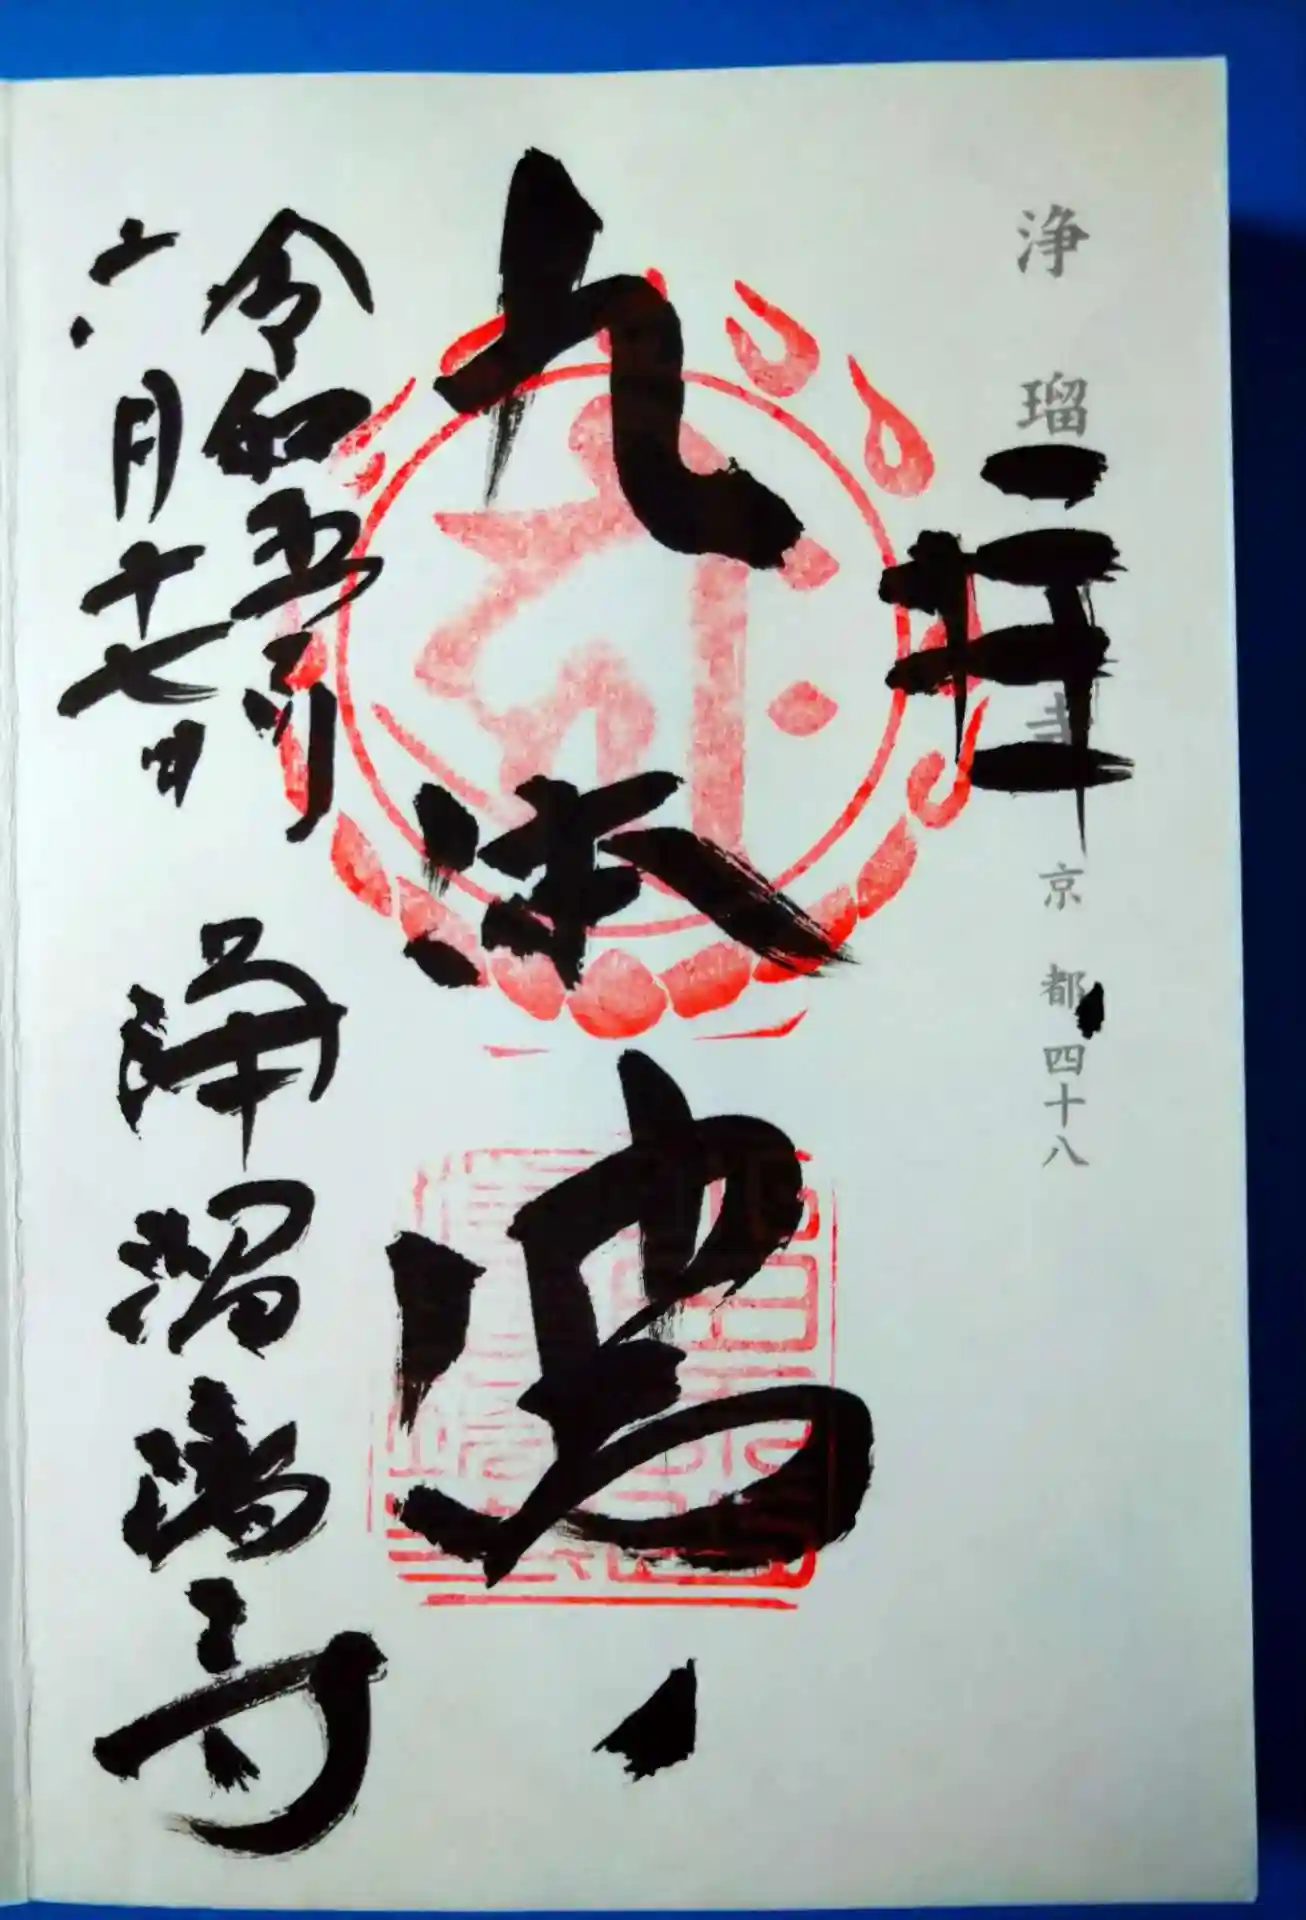 浄瑠寺 京都四十八
拝
九体佛
令和五年
六月十七日
浄瑠璃寺